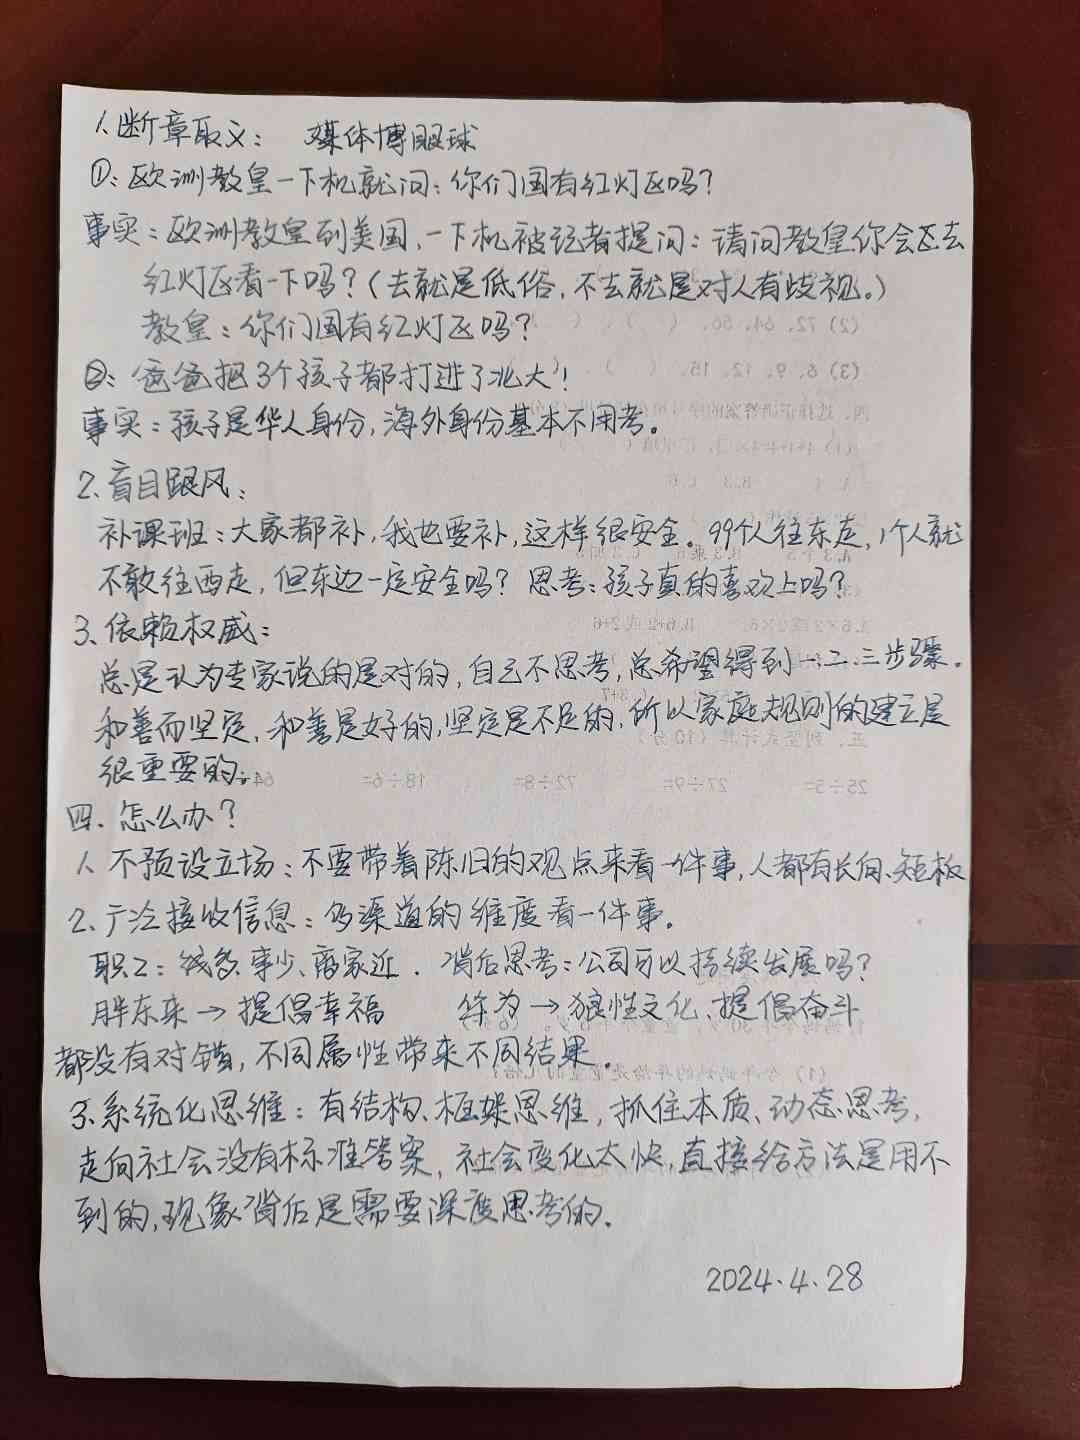 1、断章取义： 媒体博眼球
①：欧洲教皇一下机就问：你们国有红灯区吗？
事实：欧洲教皇到美国，一下机被记者提问：请问教皇你会区去
红灯区看一下吗？（去就是低俗，不去就是对人有歧视。）
教皇：你们国有红灯区吗？
②：爸爸把3个孩子都打进了北大！
事实：孩子是华人身份，海外身份基本不用考。
2、盲目跟风：
补课班：大家都补，我也要补，这样很安全。99个人往东走，1个人就
不敢往西走，但东边一定安全吗？ 思考：孩子真的喜欢上吗？
3、依赖权威：
总是认为专家说的是对的，自己不思考，总希望得到一.二.三步骤。
和善而坚定，和善是好的，坚定是不足的，所以家庭规则的建立是
很重要的。
四、怎么办？
1、不预设立场：不要带着陈旧的观点来看一件事，人都有长向、短板
2、广泛接收信息：多渠道的维度看一件事。
职工：钱多、事少、离家近． 背后思考：公司可以持续发展吗？
胖东来→提倡幸福 华为→狼性文化、提倡奋斗
都没有对错，不同属性带来不同结果．
3、系统化思维：有结构、框架思维，抓住本质、动态思考，
走向社会没有标准答案，社会变化太快，直接给方法是用不
到的，现象背后是需要深度思考的．
2024.4.28